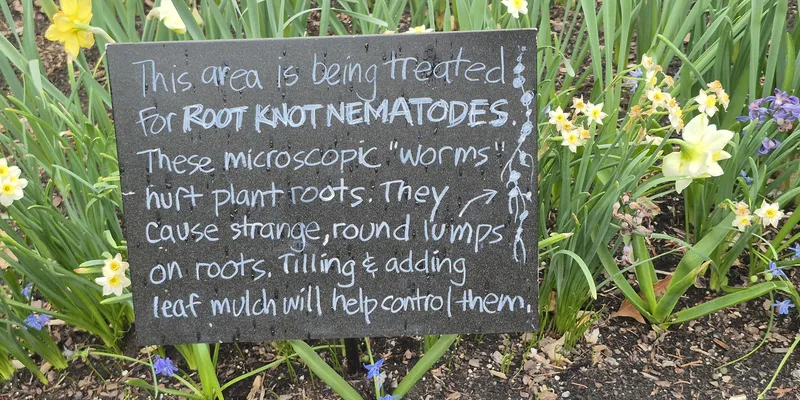 This area is being treated
For ROOT KNOT NEMATODES.
These microscopic "worms"
hurt plant roots. They
cause strange, round lumps
on roots. Tilling & adding
leaf mulch will help control them.